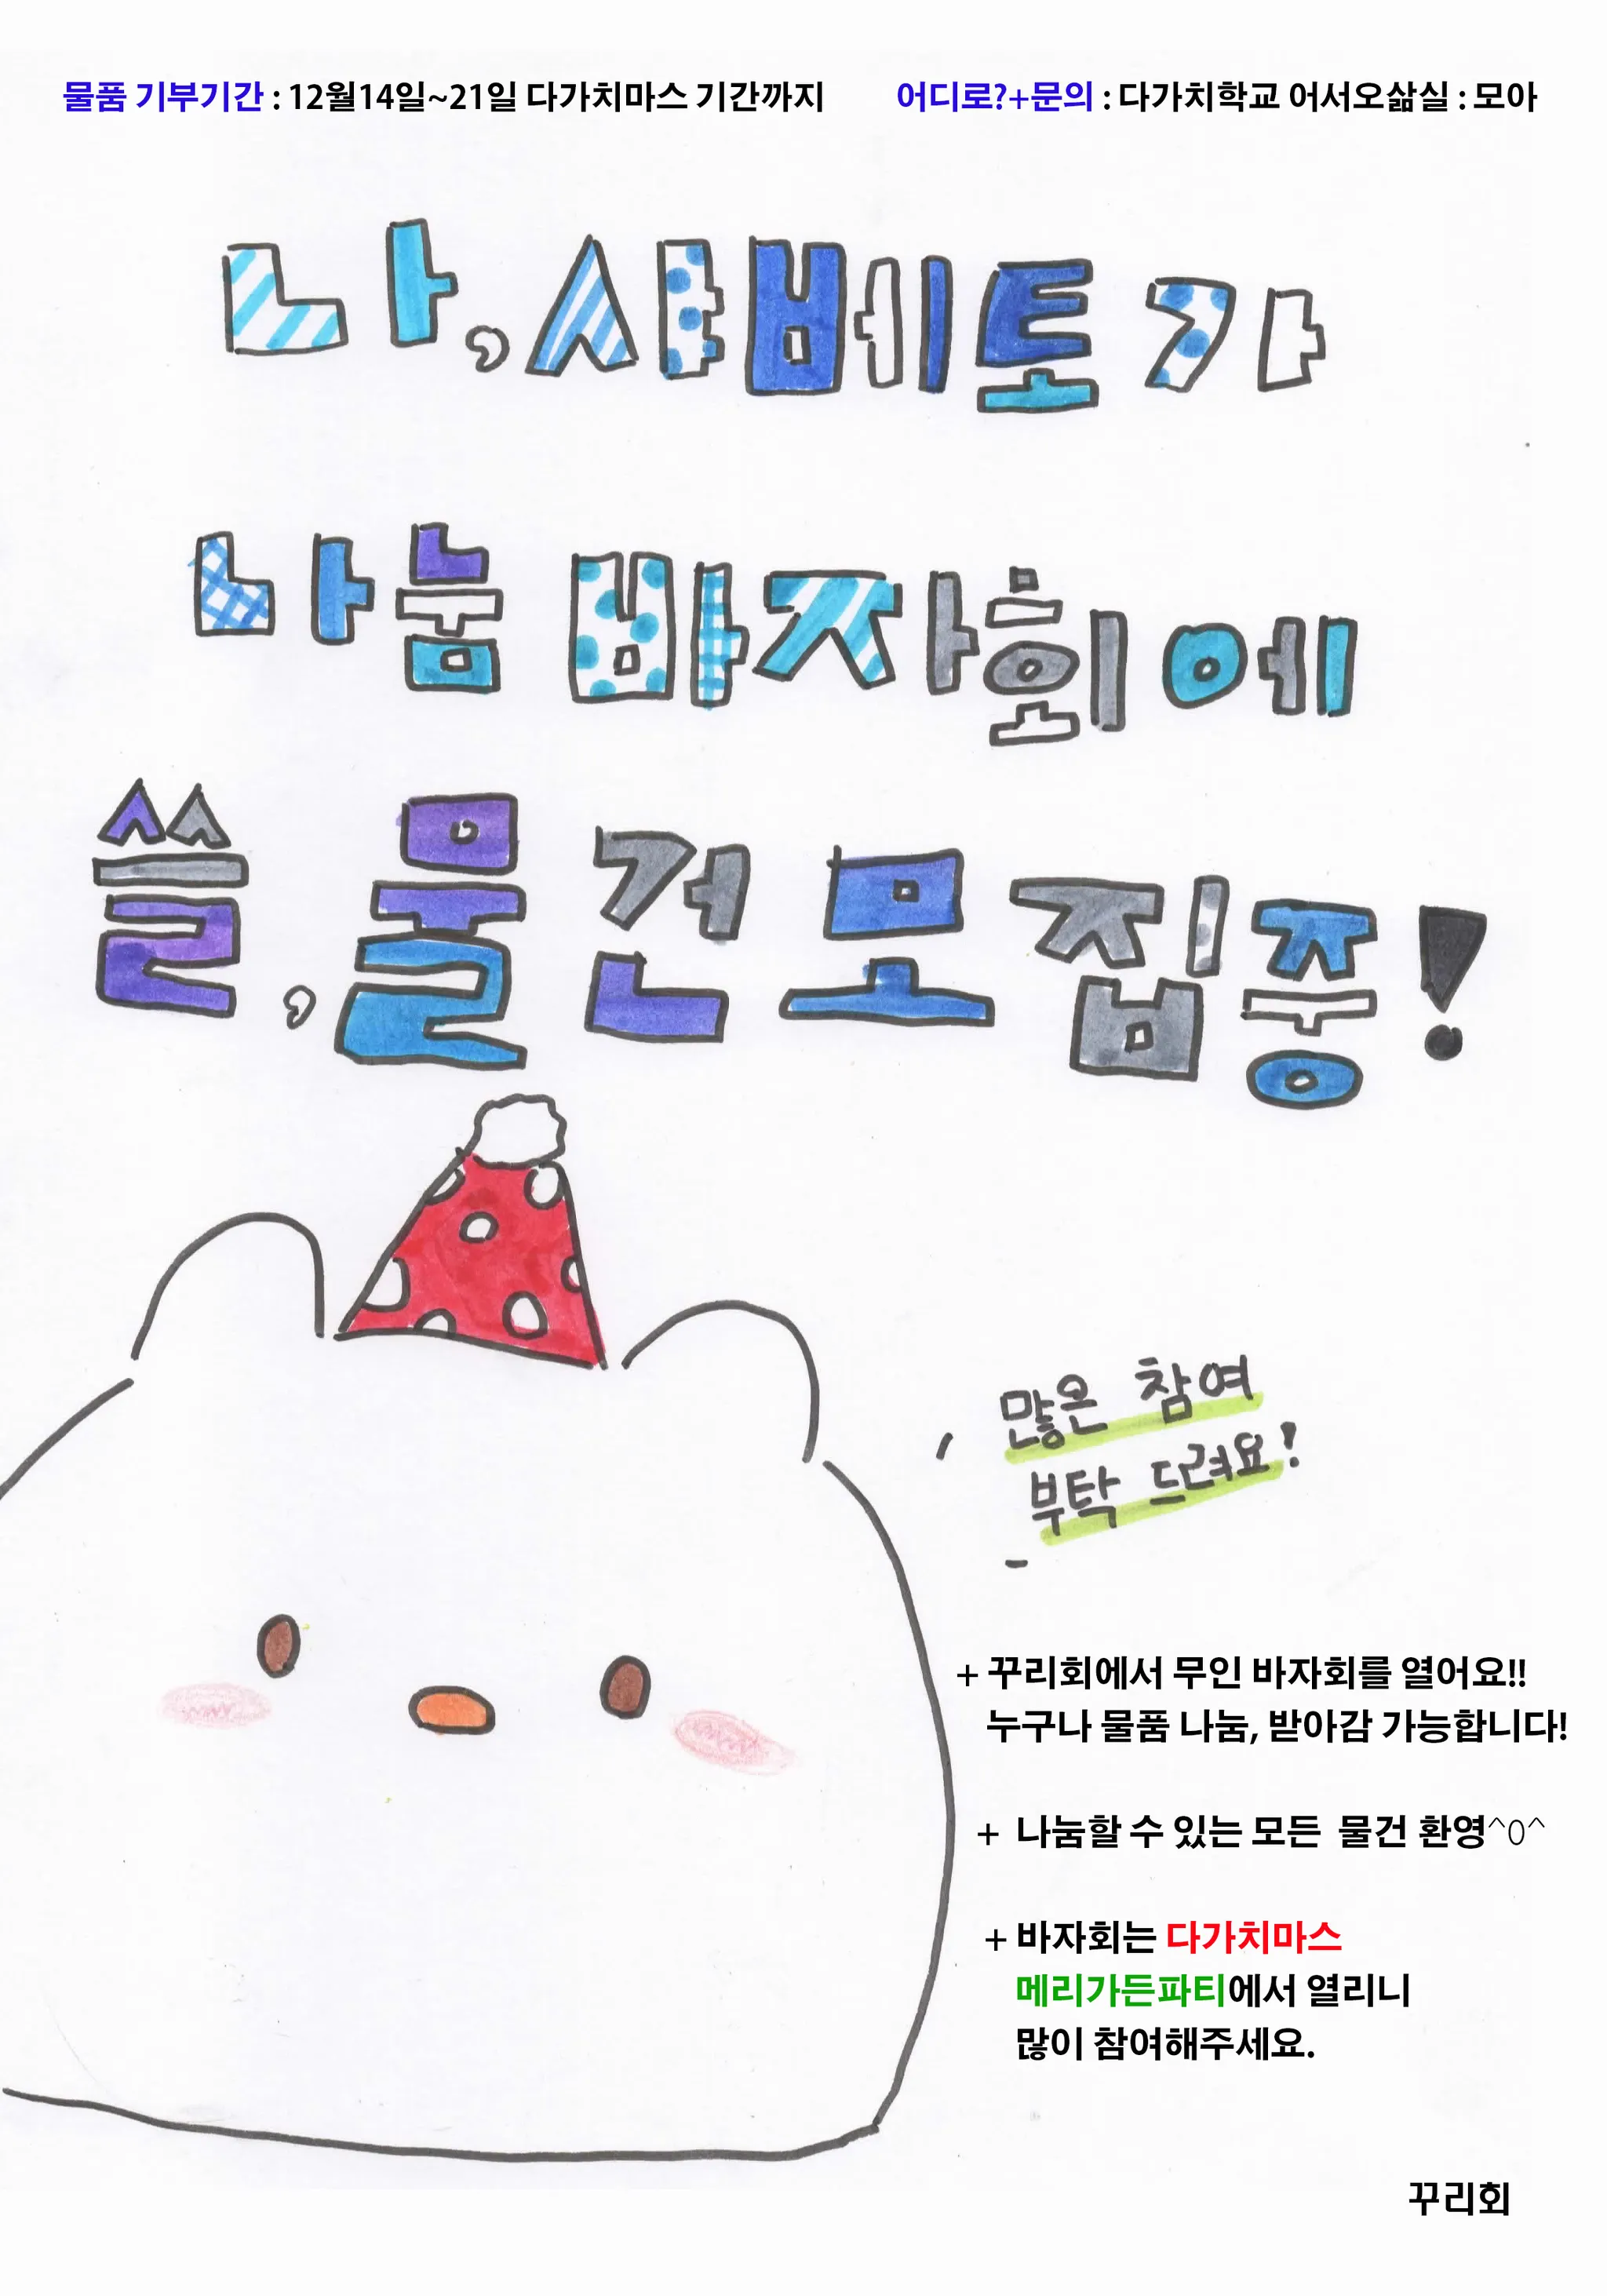 물품 기부기간 : 12월14일~21일 다가치마스 기간까지
어디로?+문의 : 다가치학교 어서오삶실 : 모아
나, 샤베토가
나눔 바자회에
쓸, 물건 모집중!
많은 참여
부탁 드려요!
+ 꾸리회에서 무인 바자회를 열어요!!
누구나 물품 나눔, 받아감 가능합니다!
+ 나눔할 수 있는 모든 물건 환영^0^
+ 바자회는 다가치마스
메리가든파티에서 열리니
많이 참여해주세요.
꾸리회